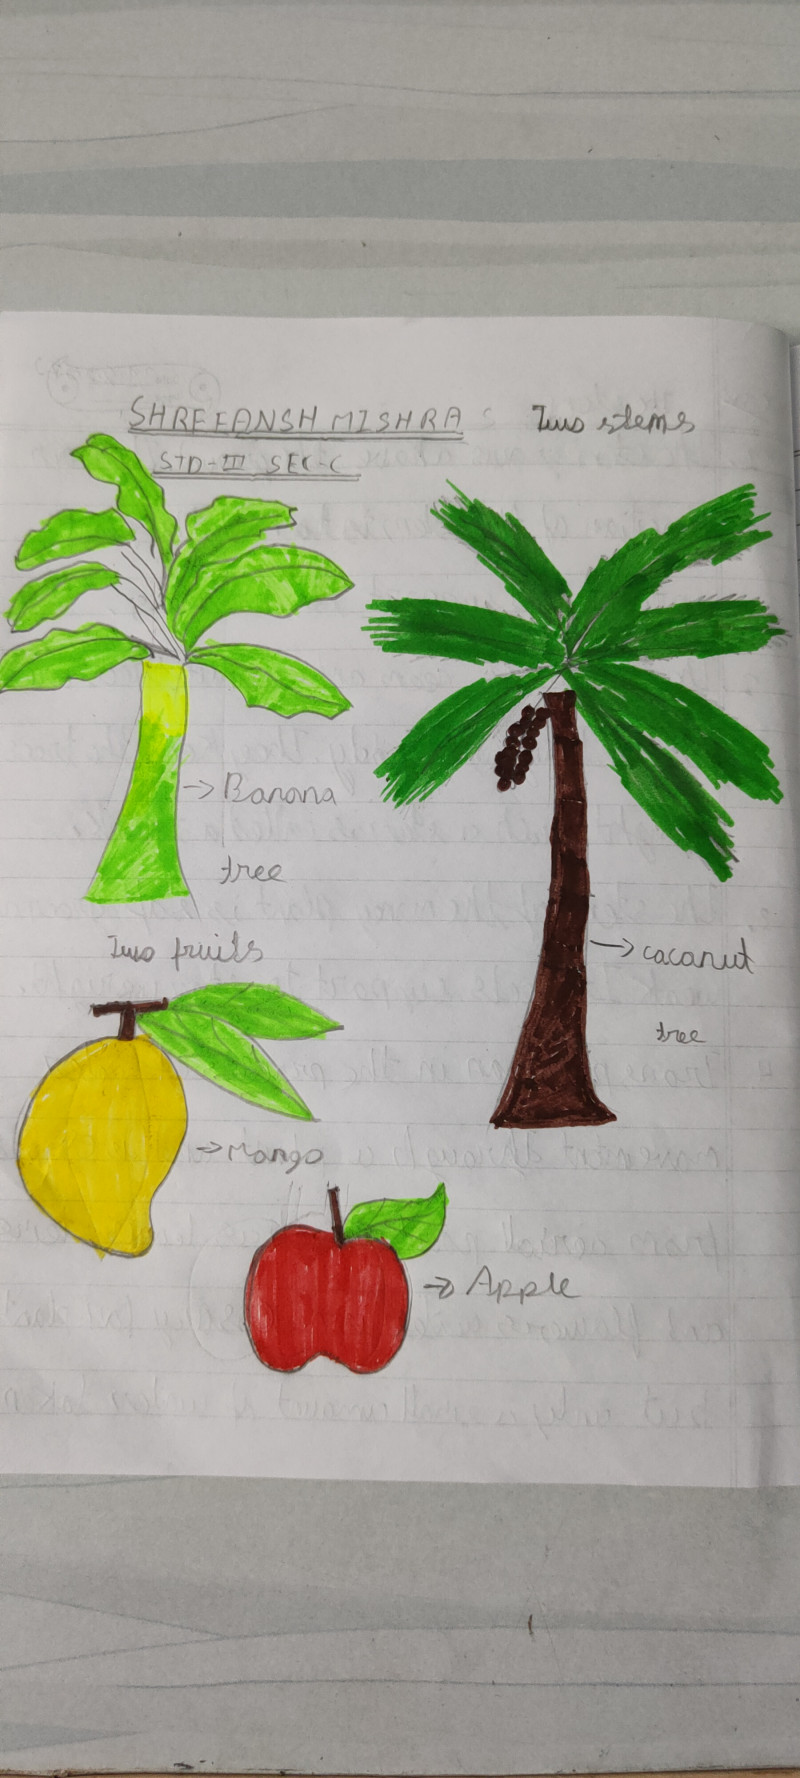 SHREEANSH MISHRA
Two stems
STD-III SEC-C
→ Banana
tree
→ cacanut
tree
Two fruits
→ Mango
→ Apple